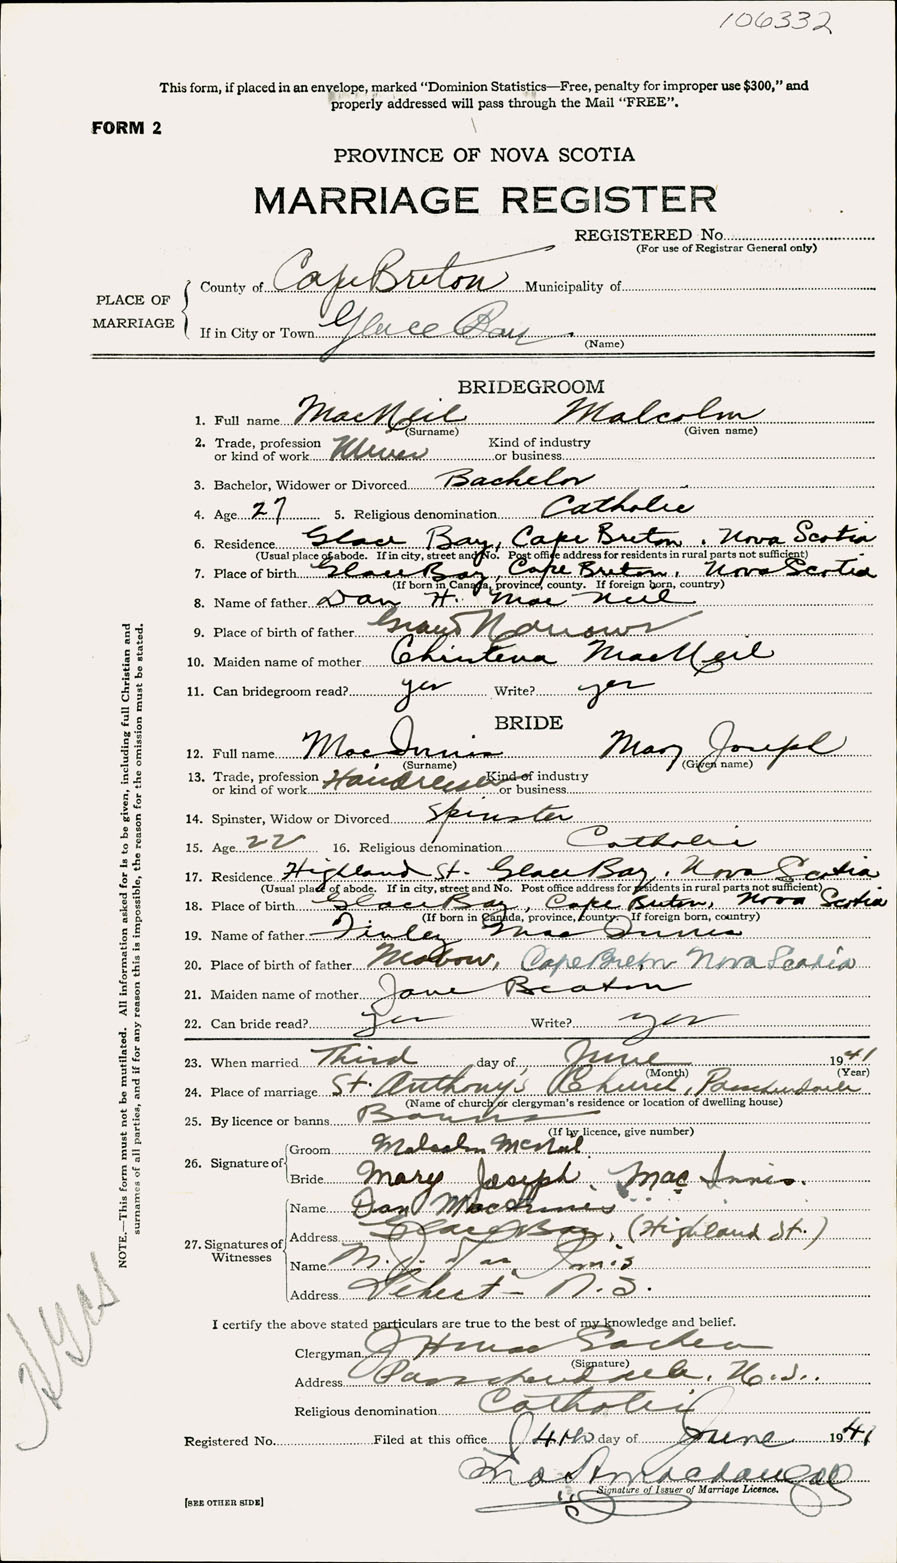 106332
This form, if placed in an envelope, marked "Dominion Statistics—Free, penalty for improper use $300," and
properly addressed will pass through the Mail "FREE".
FORM 2
PROVINCE OF NOVA SCOTIA
MARRIAGE REGISTER
REGISTERED No.
(For use of Registrar General only)
PLACE OF MARRIAGE
County of Cape Breton Municipality of
If in City or Town Glace Bay
(Name)
BRIDEGROOM
1. Full name MacNeil Malcolm
(Surname) (Given name)
2. Trade, profession or kind of work Miner Kind of industry or business
3. Bachelor, Widower or Divorced Bachelor
4. Age 27 5. Religious denomination Catholic
6. Residence Glace Bay, Cape Breton, Nova Scotia
(Usual place of abode. If in city, street and No. Post office address for residents in rural parts not sufficient)
7. Place of birth Glace Bay, Cape Breton, Nova Scotia
(If born in Canada, province, county. If foreign born, country)
8. Name of father Dan H. MacNeil
9. Place of birth of father Grand Narrows
10. Maiden name of mother MacNeil
11. Can bridegroom read? yes Write? yes
BRIDE
12. Full name MacInnis Mary Joseph
(Surname) (Given name)
13. Trade, profession or kind of work Kind of industry or business
14. Spinster, Widow or Divorced Spinster
15. Age 22 16. Religious denomination Catholic
17. Residence Highland St. Glace Bay, Nova Scotia
(Usual place of abode. If in city, street and No. Post office address for residents in rural parts not sufficient)
18. Place of birth Glace Bay, Cape Breton, Nova Scotia
(If born in Canada, province, county. If foreign born, country)
19. Name of father Finley MacInnis
20. Place of birth of father Mabou, Cape Breton Nova Scotia
21. Maiden name of mother Jane Beaton
22. Can bride read? yes Write? yes
23. When married Third day of June 1941
(Month) (Year)
24. Place of marriage St. Anthony's Church, Passchendaele
(Name of church or clergyman's residence or location of dwelling house)
25. By licence or banns Banns
(If by licence, give number)
26. Signature of
Groom Malcolm McNeil
Bride Mary Joseph MacInnis.
27. Signatures of Witnesses
Name Dan MacInnis
Address Glace Bay, (Highland St.)
Name M. J.
Address Debert - N.S.
I certify the above stated particulars are true to the best of my knowledge and belief.
Clergyman J H
(Signature)
Address Passchendaele, N.S.
Religious denomination Catholic
Registered No. Filed at this office 4th day of June 1941
Signature of Issuer of Marriage Licence.
[SEE OTHER SIDE]
NOTE.—This form must not be mutilated. All information asked for is to be given, including full Christian and
surnames of all parties, and if for any reason this is impossible, the reason for the omission must be stated.